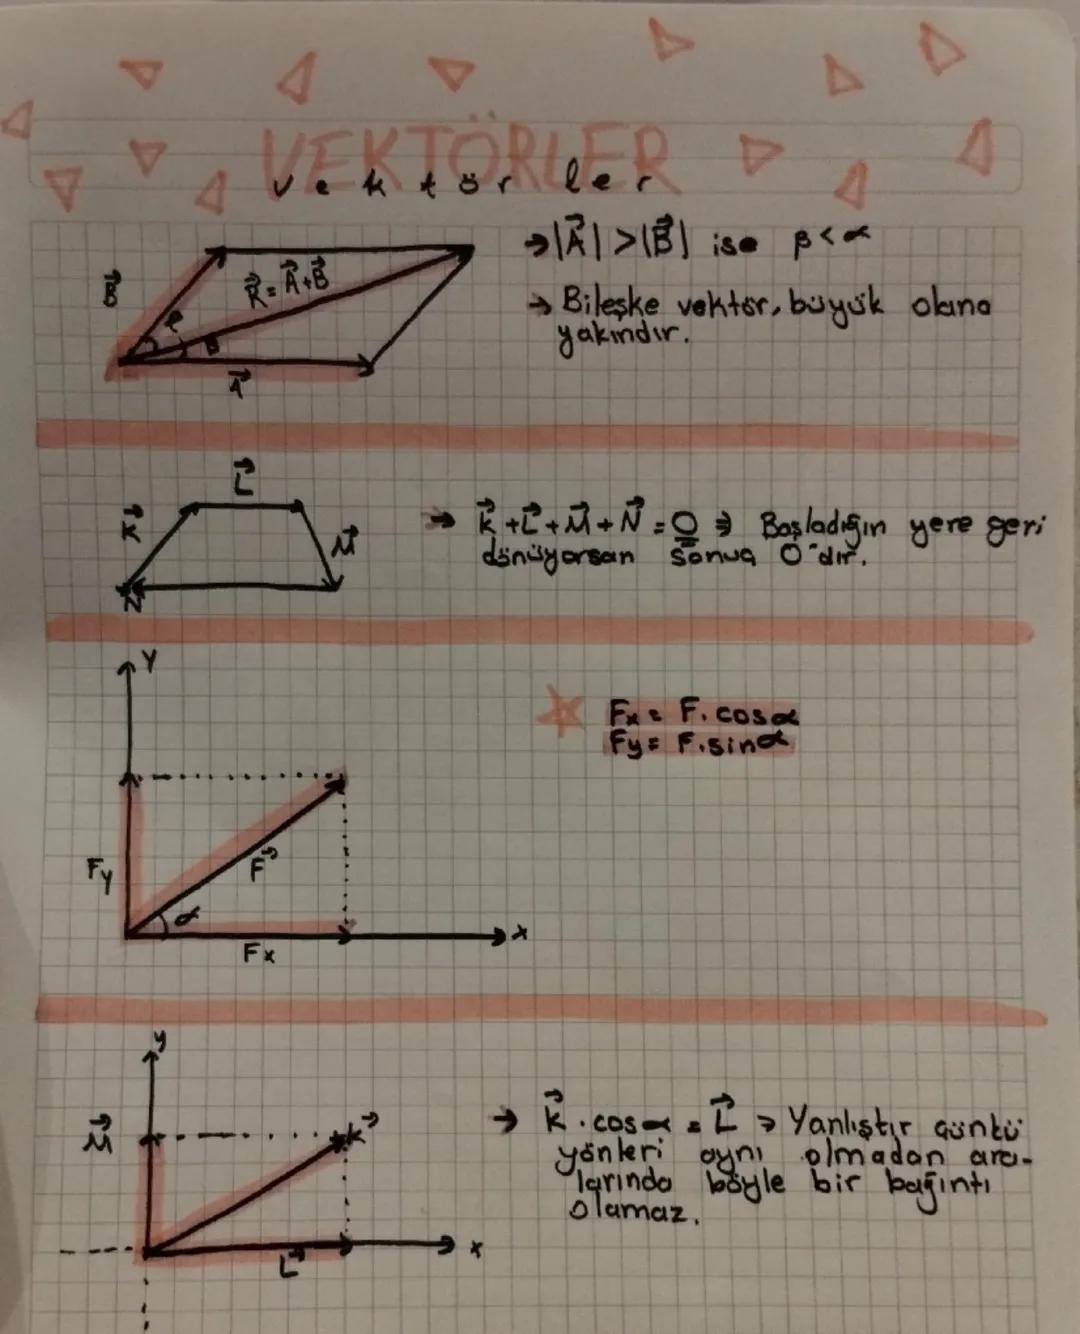 VEKTÖRLER
vektörler
B⃗
R⃗ = A⃗+B⃗
A⃗
→ |A⃗| > |B⃗| ise β < α
→ Bileşke vektör, büyük olana
yakındır.
L⃗
K⃗
M⃗
N
→ K⃗ + L⃗ + M⃗ + N⃗ = 0 ⇒ Başladığın yere geri
dönüyorsan sonuç 0'dır.
Y
Fy
F⃗
α
Fx
x
Fx = F. cosα
Fy = F. sinα
y
M⃗
K⃗
L⃗
x
→ K⃗ . cosα = L⃗ → Yanlıştır çünkü
yönleri aynı olmadan ara-
larında böyle bir bağıntı
olamaz.